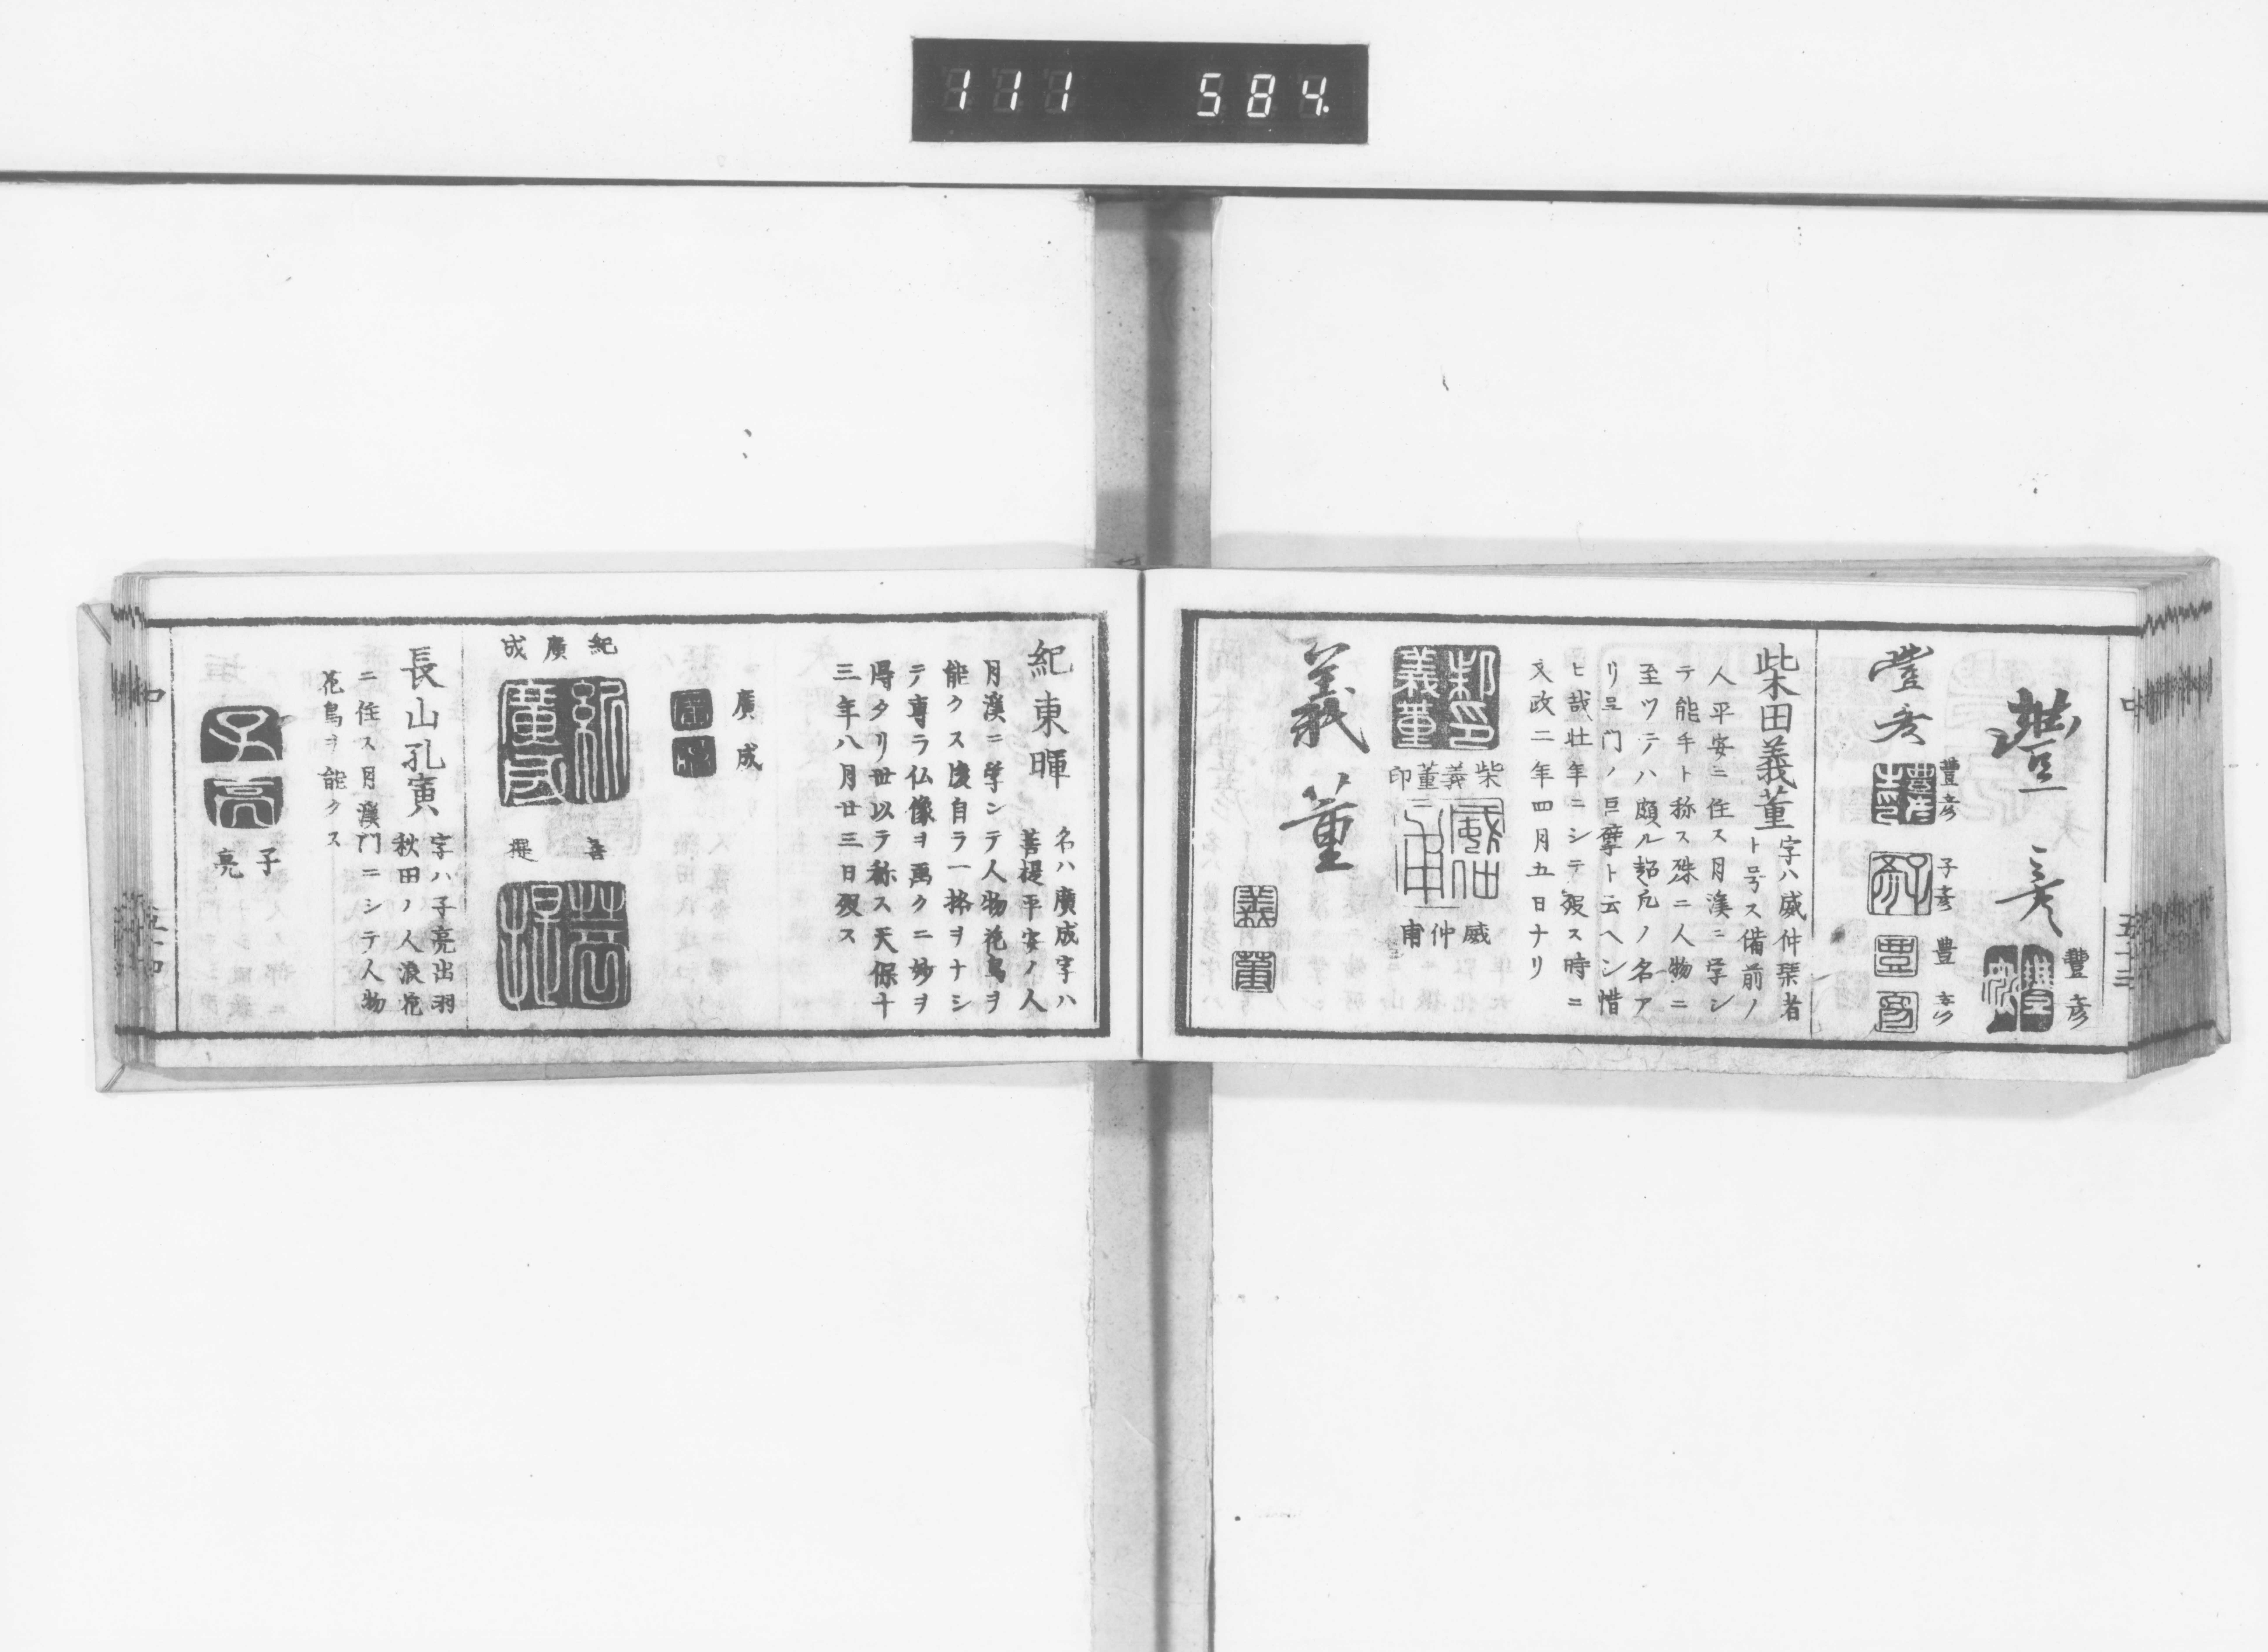 111 584.
豐彦
豐彦
豊彦
豐彦
子彦
豊
彦
柴田義董 字ハ威仲琴者
ト号ス備前ノ
人平安ニ住ス月溪ニ学シ
テ能手ト称ス殊ニ人物ニ
至ツテハ頗ル超凡ノ名ア
リ呉門ノ巨擘ト云ヘシ惜
ヒ哉壮年ニシテ歿ス時ニ
文政二年四月五日ナリ
柴義董印
威仲甫
義董
義
董
紀東暉 名ハ廣成字ハ
菩提平安ノ人
月溪ニ学ンテ人物花鳥ヲ
能クス後自ラ一格ヲナシ
テ専ラ仏像ヲ画クニ妙ヲ
得タリ世以テ称ス天保十
三年八月廿三日歿ス
廣成
紀廣成
菩提
長山孔寅 字ハ子亮出羽
秋田ノ人浪花
ニ住ス月溪門ニシテ人物
花鳥ヲ能クス
子亮
子亮
中
五十三